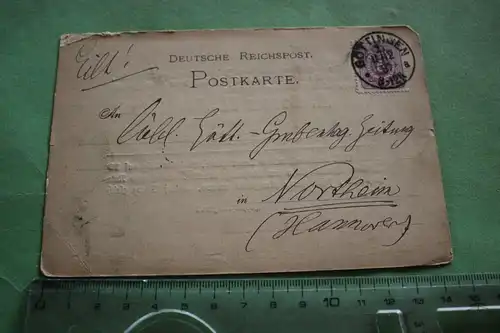 Eilt!
DEUTSCHE REICHSPOST.
POSTKARTE.
GÖTTINGEN
An
Gött.-Grubenhag. Zeitung
in Northeim
(Hannover)
1 2 3 4 5 6 7 8 9 10 11 12 13 14 15